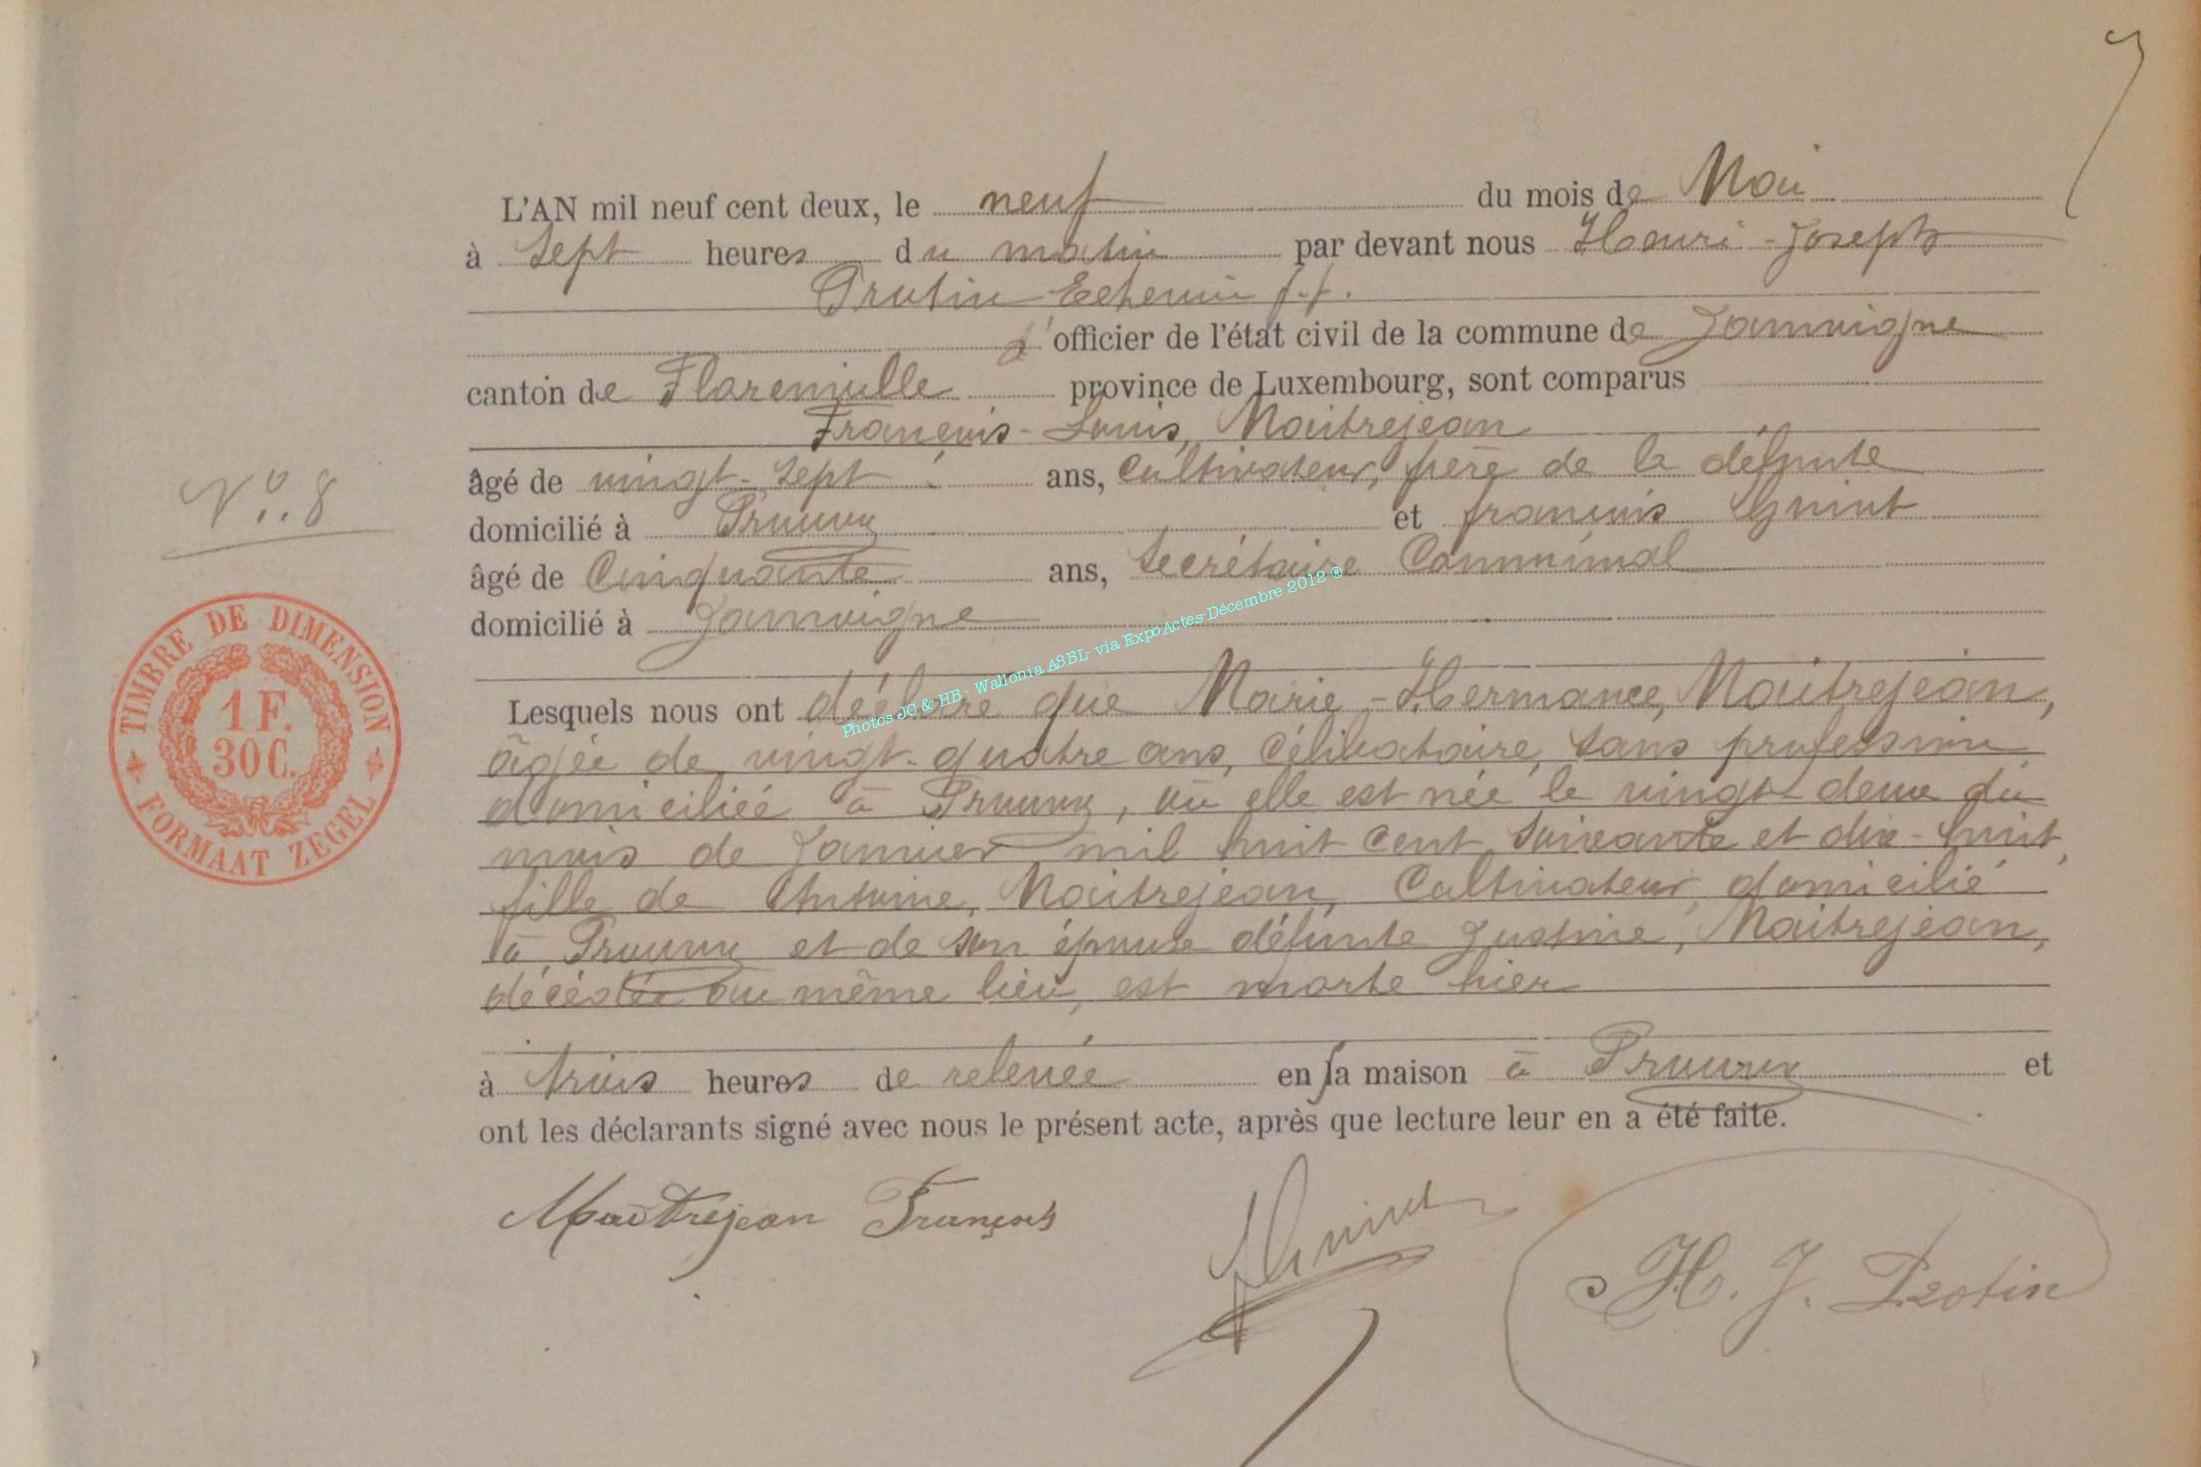 L'AN mil neuf cent deux, le neuf du mois de Mai
à sept heures du matin par devant nous Henri-Joseph
Protin Echevin f.f.
d'officier de l'état civil de la commune de Jamoigne
canton de Florenville province de Luxembourg, sont comparus
François-Louis, Maitrejean
âgé de vingt-sept ans, cultivateur, frère de la défunte
domicilié à Prouvy et françois Guiot
N°. 8
âgé de Cinquante ans, Secrétaire Communal
domicilié à Jamoigne
TIMBRE DE DIMENSION
1 F.
30 C.
FORMAAT ZEGEL
Photos JC & HB - Wallonia ASBL- via ExpoActes Décembre 2012 ®
Lesquels nous ont déclaré que Marie-Hermance, Maitrejean,
âgée de vingt-quatre ans, célibataire, sans profession
domiciliée à Prouvy, où elle est née le vingt deux du
mois de Janvier mil huit cent soixante et dix-huit,
fille de Antoine, Maitrejean, Cultivateur, domicilié
à Prouvy et de son épouse défunte Justine, Maitrejean,
décédée au même lieu, est morte hier
à trois heures de relevée en sa maison à Prouvy et
ont les déclarants signé avec nous le présent acte, après que lecture leur en a été faite.
Maitrejean François
H. J. Protin